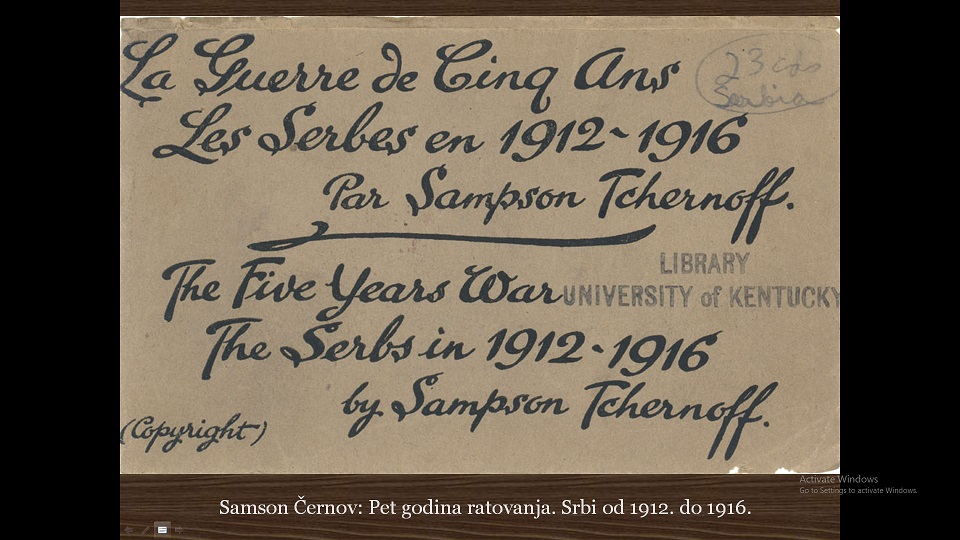 La Guerre de Cinq Ans
23 cds
Serbia
Les Serbes en 1912~1916
Par Sampson Tchernoff.
The Five Years War
LIBRARY
UNIVERSITY of KENTUCKY
The Serbs in 1912-1916
by Sampson Tchernoff.
(Copyright)
Activate Windows
Go to Settings to activate Windows.
Samson Černov: Pet godina ratovanja. Srbi od 1912. do 1916.